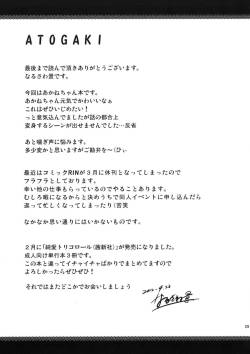 ATOGAKI
最後まで読んで頂きありがとうございます。
なるさわ景です。
今回はあかねちゃん本です。
あかねちゃん元気でかわいいなぁ
これはぜひいじめたい！
っと意気込んでましたが話の都合上
変身するシーンが出せませんでした…反省
あと喘ぎ声に悩みます。
多少変かと思いますがご勘弁を～(ひぃ
最近はコミックRINが３月に休刊となってしまったので
フラフラとしております。
幸い他の仕事もらっているのでやることあります。
むしろ暇になるからと決めうちで同人イベントに申し込んだら
違って忙しくなってしまったり(苦笑
なかなか思い通りにはいかないものです。
２月に「純愛トリコロール(茜新社)」が発売になりました。
成人向け単行本３冊です。
この本と違ってイチャイチャばかりでまとめてますので
よろしかったらぜひぜひ！
それではまたどこかでお会いしましょう